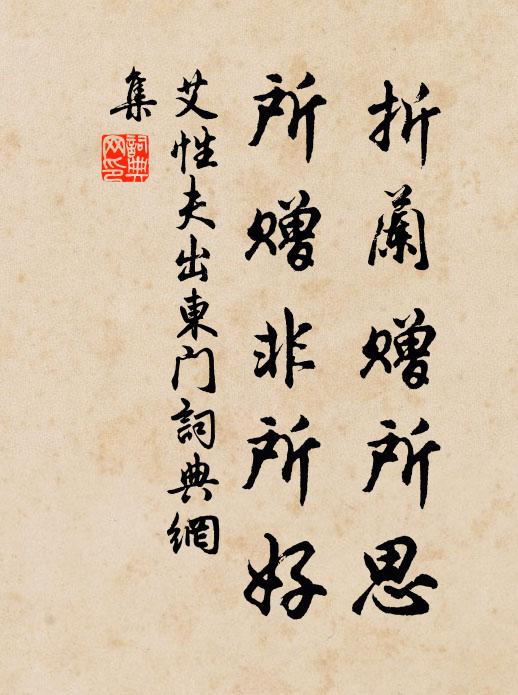 折蘭赠所思
所赠非所好
艾性夫出東门詞典網
集
詞典
网印